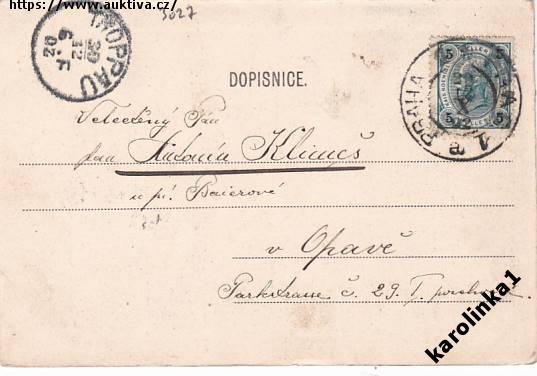 https://www.auktiva.cz/
5027
TROPPAU
30
12
6.F
02
DOPISNICE.
5 5
5 5
PRAHA
1 a
Velectěný Pán
pan Antonín Klimeš
u pí. Baierové
v Opavě
Parkstrasse č. 29. I. poschodí
karolinka1